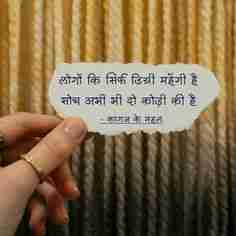 लोगों कि सिर्फ डिग्री महँगी है
सोच अभी भी दो कौड़ी की है
- कागज के महल